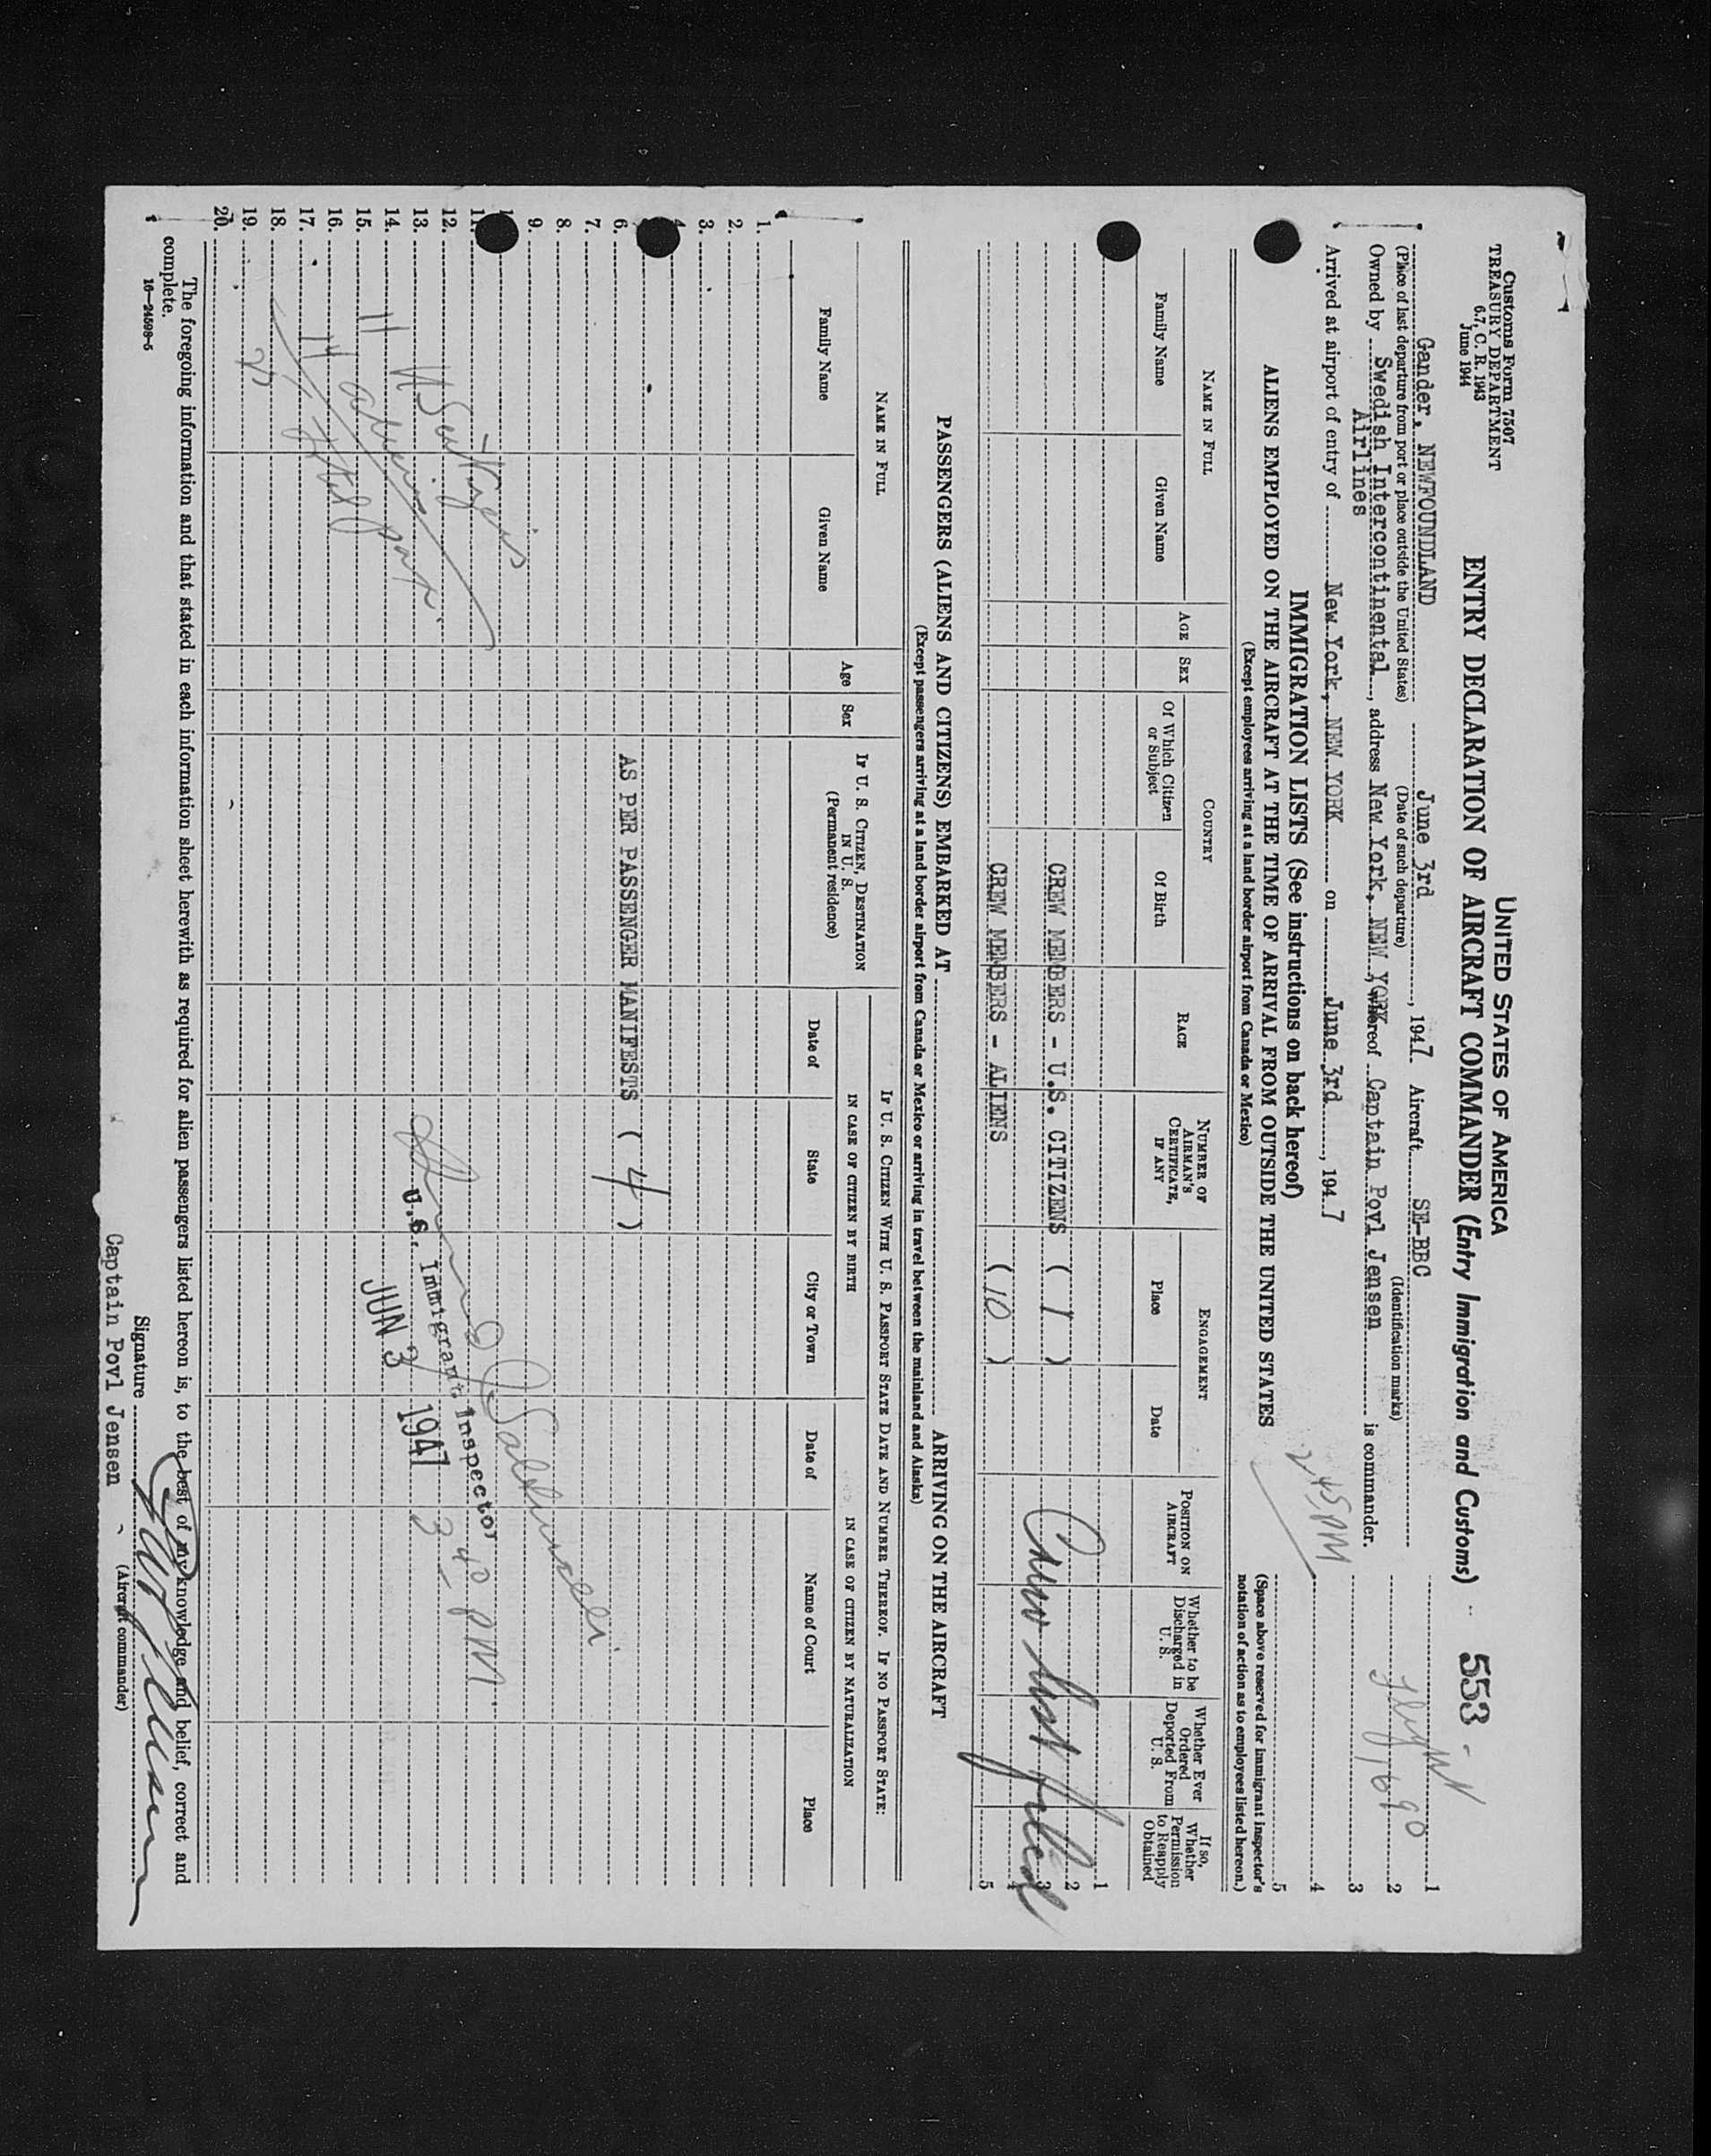 Customs Form 7507
TREASURY DEPARTMENT
6.7, C. R. 1943
June 1944
UNITED STATES OF AMERICA
ENTRY DECLARATION OF AIRCRAFT COMMANDER (Entry Immigration and Customs) 553 -
Flight 1690
Gander, NEWFOUNDLAND June 3rd, 1947 Aircraft SE-BBC
(Place of last departure from port or place outside the United States) (Date of such departure) (Identification marks)
Owned by Swedish Intercontinental, address New York, NEW YORK, whereof Captain Povl Jensen is commander.
Airlines
Arrived at airport of entry of New York, NEW YORK on June 3rd, 1947
1
2
3
4
5
245 PM
IMMIGRATION LISTS (See instructions on back hereof)
ALIENS EMPLOYED ON THE AIRCRAFT AT THE TIME OF ARRIVAL FROM OUTSIDE THE UNITED STATES
(Except employees arriving at a land border airport from Canada or Mexico)
(Space above reserved for immigrant inspector's
notation of action as to employees listed hereon.)
NAME IN FULL
Family Name
Given Name
AGE
SEX
COUNTRY
Of Which Citizen or Subject
Of Birth
RACE
NUMBER OF AIRMAN'S CERTIFICATE, IF ANY
ENGAGEMENT
Place
Date
POSITION ON AIRCRAFT
Whether to be Discharged in U. S.
Whether Ever Ordered Deported From U. S.
If so, Whether Permission to Reapply Obtained
1
2
CREW MEMBERS - U.S. CITIZENS ( 1 )
3
4
CREW MEMBERS - ALIENS ( 10 )
5
Crew list filed
PASSENGERS (ALIENS AND CITIZENS) EMBARKED AT ARRIVING ON THE AIRCRAFT
(Except passengers arriving at a land border airport from Canada or Mexico or arriving in travel between the mainland and Alaska)
NAME IN FULL
Family Name
Given Name
Age
Sex
IF U. S. CITIZEN, DESTINATION IN U. S.
(Permanent residence)
IF U. S. CITIZEN WITH U. S. PASSPORT STATE DATE AND NUMBER THEREOF. IF NO PASSPORT STATE:
IN CASE OF CITIZEN BY BIRTH
Date of
State
City or Town
IN CASE OF CITIZEN BY NATURALIZATION
Date of
Name of Court
Place
1.
2.
3.
4
6.
AS PER PASSENGER MANIFESTS ( 4 )
7.
8.
9.
11.
12.
13.
14.
15.
16.
17.
18.
19.
20.
11
14
total
U.S. Immigrant Inspector
JUN 3 1947
3 40 PM.
The foregoing information and that stated in each information sheet herewith as required for alien passengers listed hereon is, to the best of my knowledge and belief, correct and
complete.
16—24598-5
Signature
(Aircraft commander)
Captain Povl Jensen